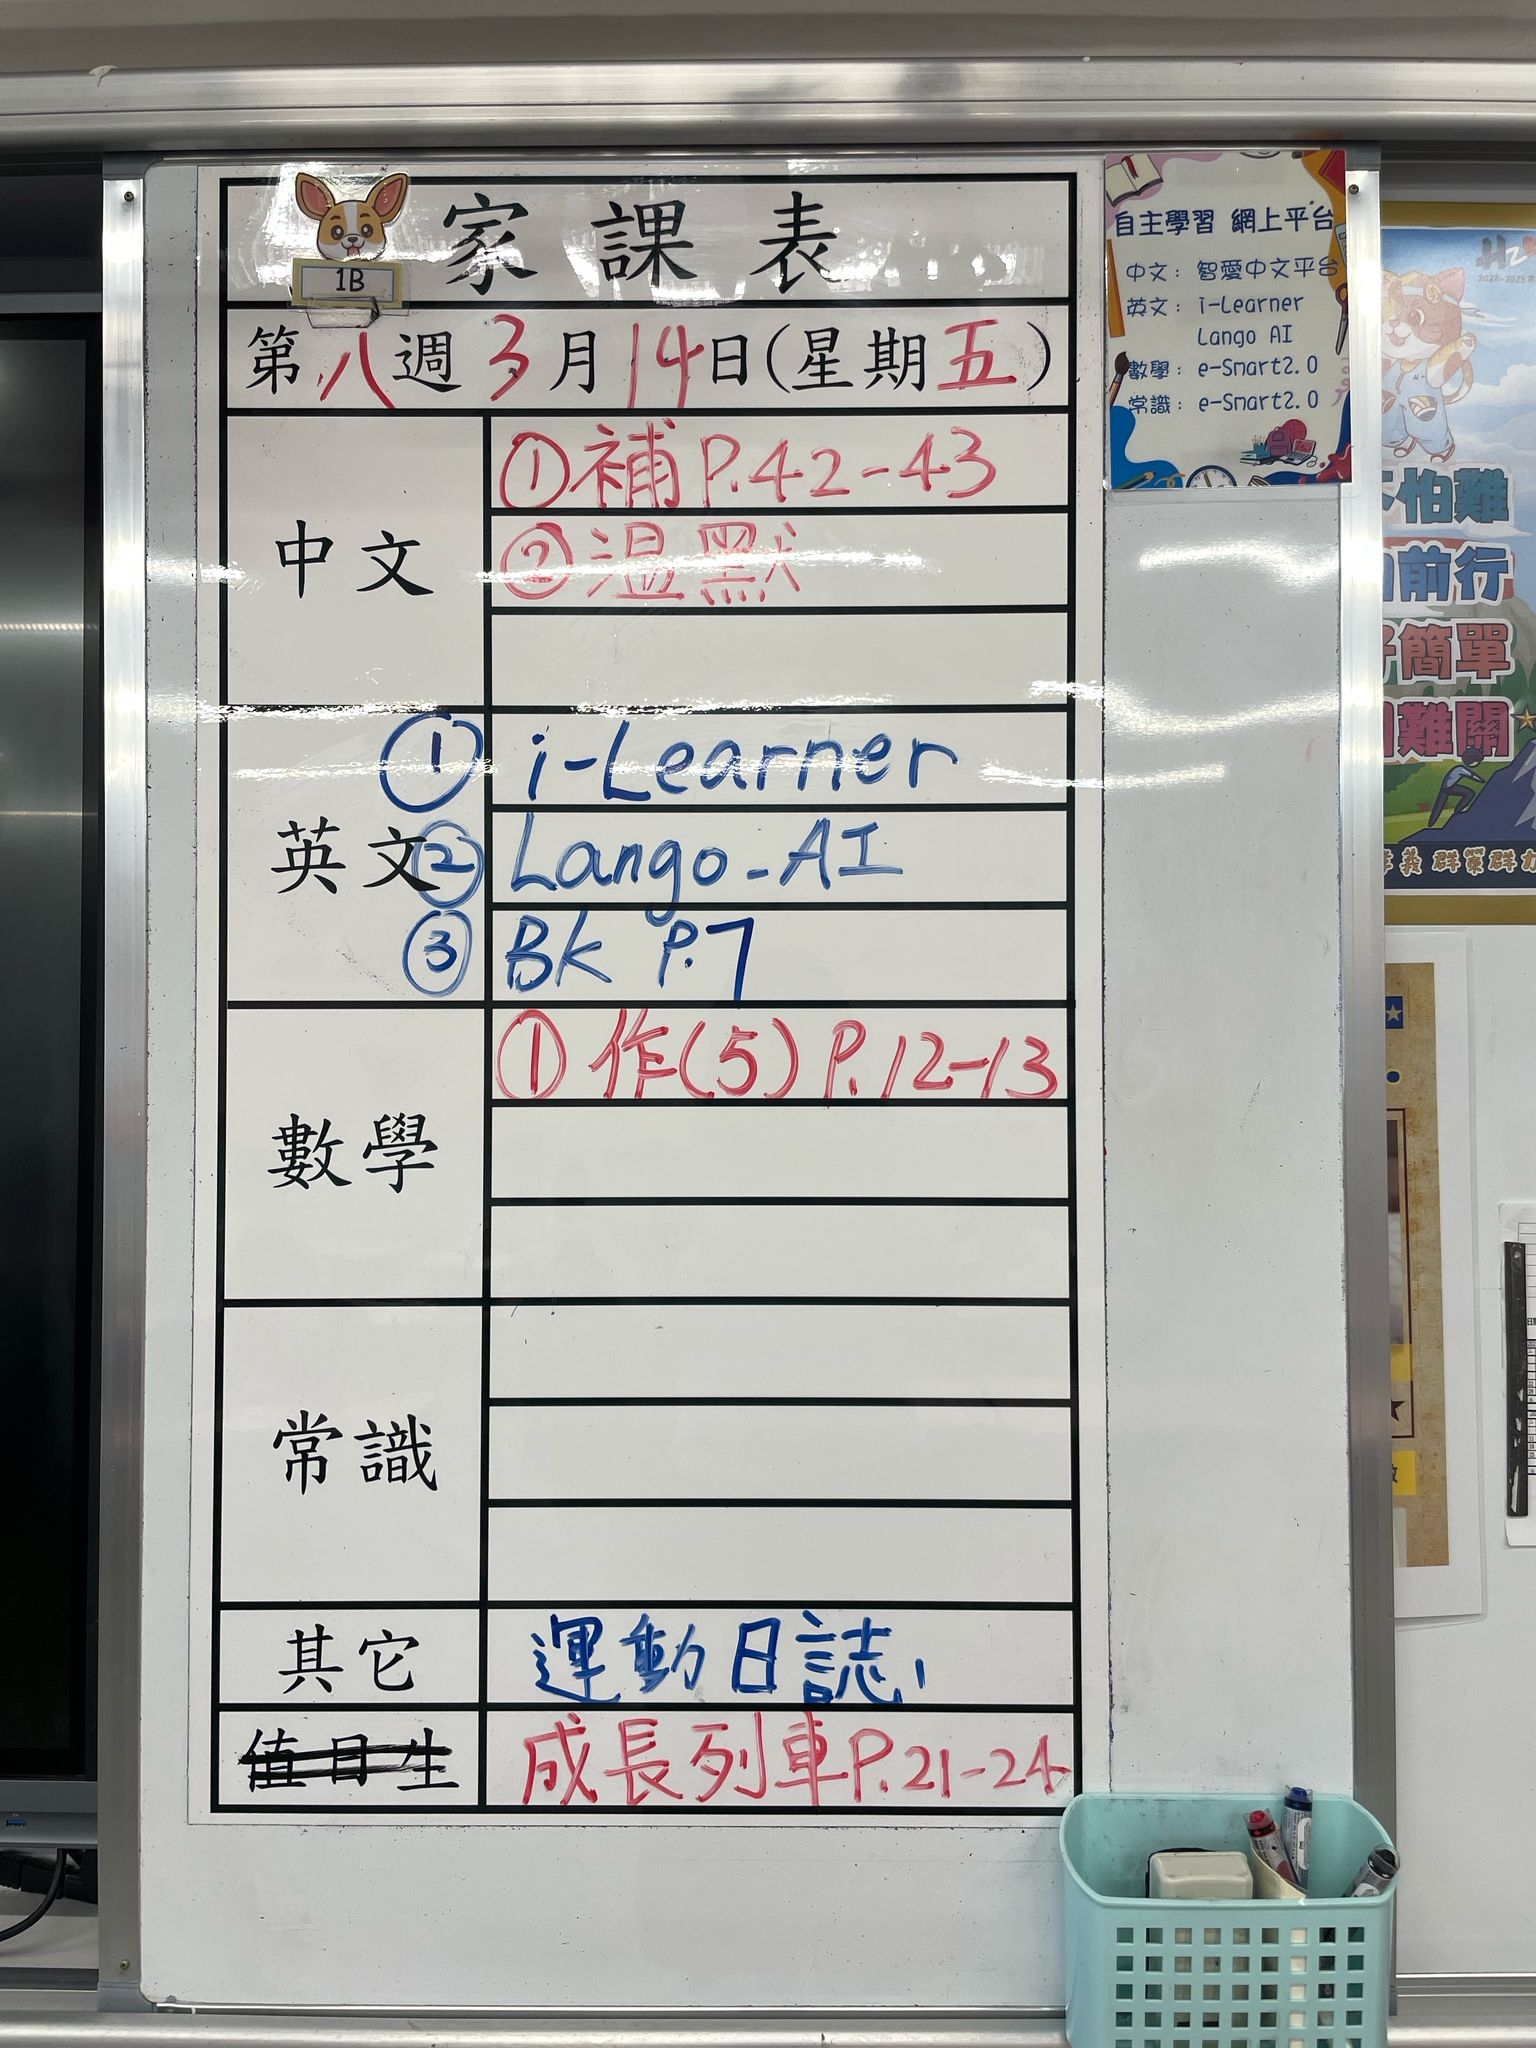 家課表
1B
第八週3月14日(星期五)
中文
①補P.42-43
②温默
英文
① i-Learner
② Lango-AI
③ BK P.7
數學
①作(5)P.12-13
常識
其它
運動日誌,
值日生
成長列車P.21-24
自主學習 網上平台
中文：智愛中文平台
英文：i-Learner
Lango AI
數學：e-Smart2.0
常識：e-Smart2.0
2024-2025
怕難
前行
簡單
難關
義 群策群力